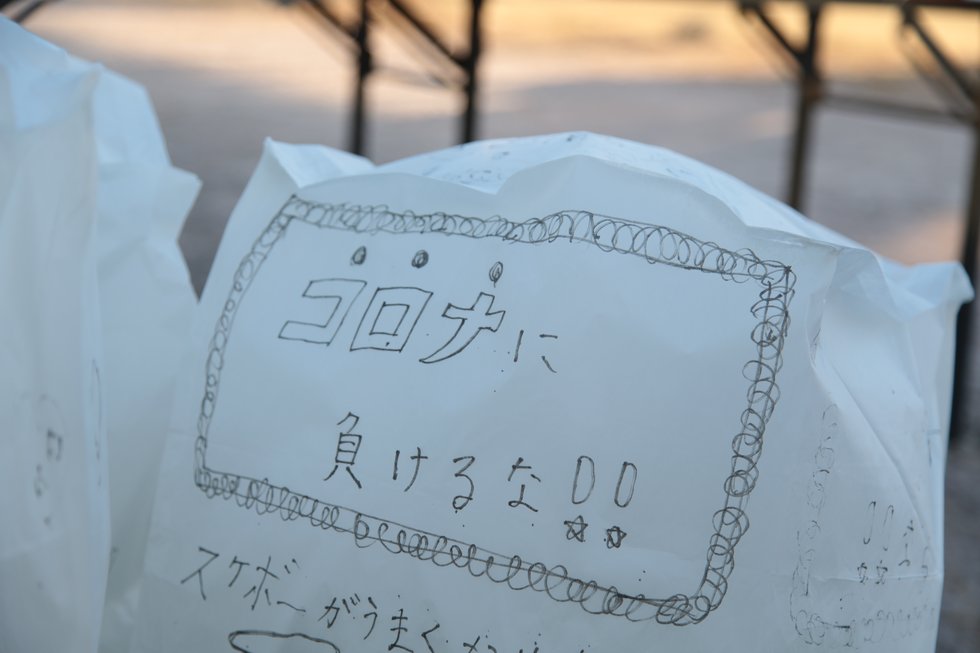 コロナに
負けるな!!
スケボーがうまく